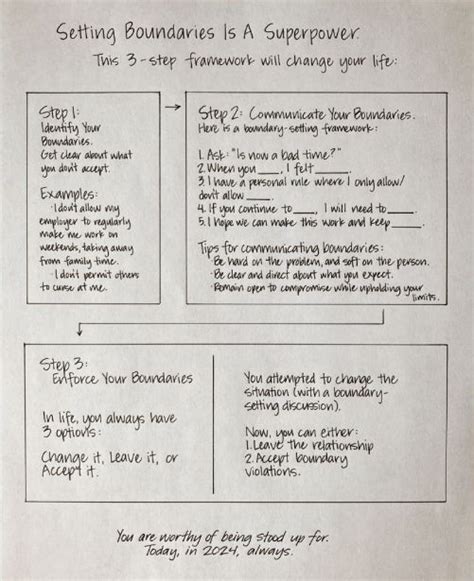 Setting Boundaries Is A Superpower.
This 3-step framework will change your life:
Step 1:
Identify Your
Boundaries.
Get clear about what
you don't accept.
Examples:
· I don't allow my
employer to regularly
make me work on
weekends, taking away
from family time.
· I don't permit others
to curse at me.
Step 2: Communicate Your Boundaries.
Here is a boundary-setting framework:
1. Ask: "Is now a bad time?"
2. When you ____, I felt ____.
3. I have a personal rule where I only allow/
don't allow ____.
4. If you continue to ____, I will need to ____.
5. I hope we can make this work and keep ____.
Tips for communicating boundaries:
· Be hard on the problem, and soft on the person.
· Be clear and direct about what you expect.
· Remain open to compromise while upholding your
limits.
Step 3:
Enforce Your Boundaries
In life, you always have
3 options:
Change it, Leave it, or
Accept it.
You attempted to change the
situation (with a boundary-
setting discussion).
Now, you can either:
1. Leave the relationship
2. Accept boundary
violations.
You are worthy of being stood up for.
Today, in 2024, always.